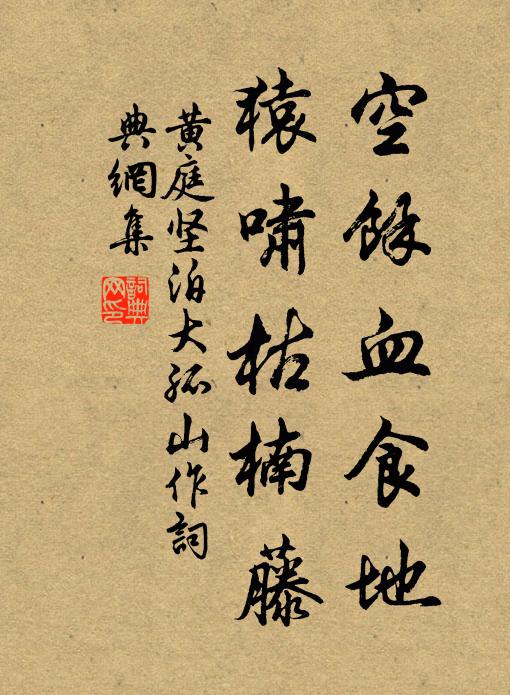 空餘血食地
猿嘯枯楠藤
黄庭坚泊大孤山作詞
典網集
詞典網印